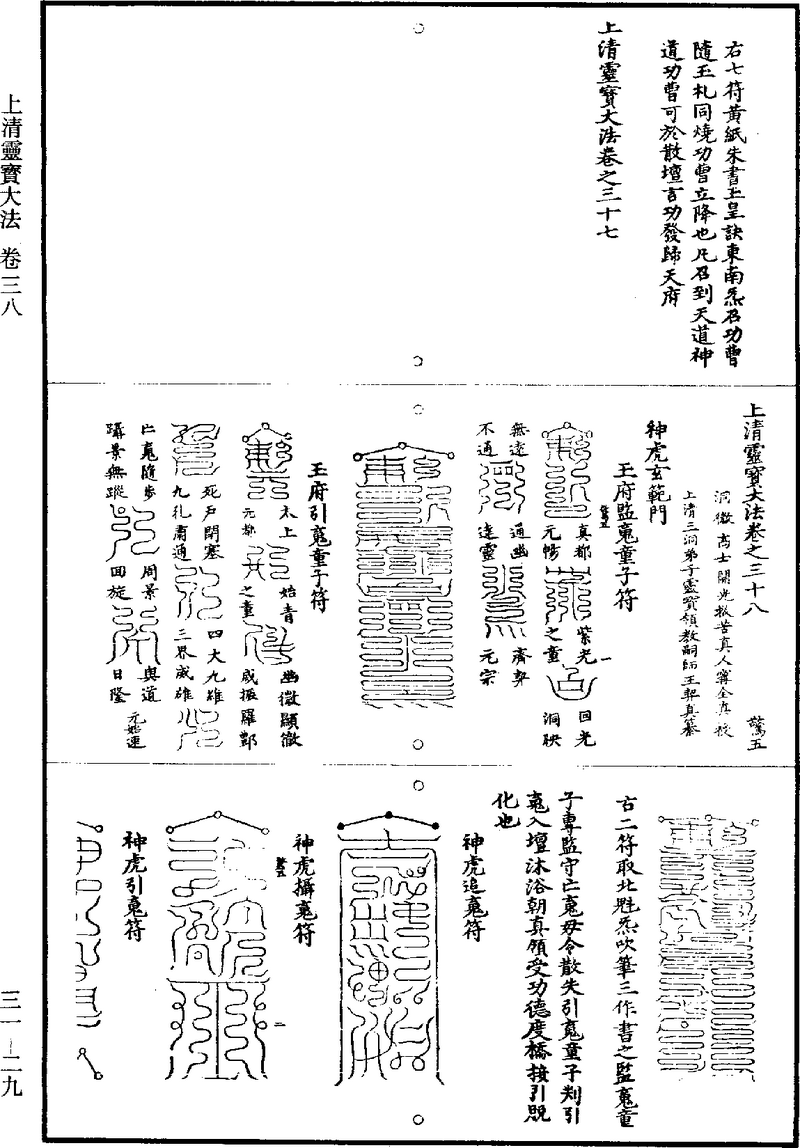 上清靈寶大法 卷三八
三一—二九
右七符黃紙朱書玉皇訣東南炁召功曹
隨玉札同燒功曹立降也凡召到天道神
道功曹可於散壇言功發歸天府
上清靈寶大法卷之三十七
上清靈寶大法卷之三十八
驚五
洞微高士開光救苦真人甯全真校
上清三洞弟子靈寶領教嗣師王契真纂
神虎玄範門
玉府監䰟童子符
真都
元暢
紫光
之童
回光
洞映
無遠
不通
通幽
達靈
齊契
元宗
玉府引䰟童子符
太上
元都
始青
之童
幽微顯徹
威振羅酆
死戶閉塞
九孔肅通
四大九雄
三界咸雄
亡䰟隨步
躡景無蹤
周景
回旋
與道
日隆
元始運
右二符取北魁炁吹筆三作書之監䰟童
子專監守亡䰟毋令散失引䰟童子判引
䰟入壇沐浴朝真領受功德度橋接引既
化也
神虎追䰟符
神虎攝䰟符
神虎引䰟符